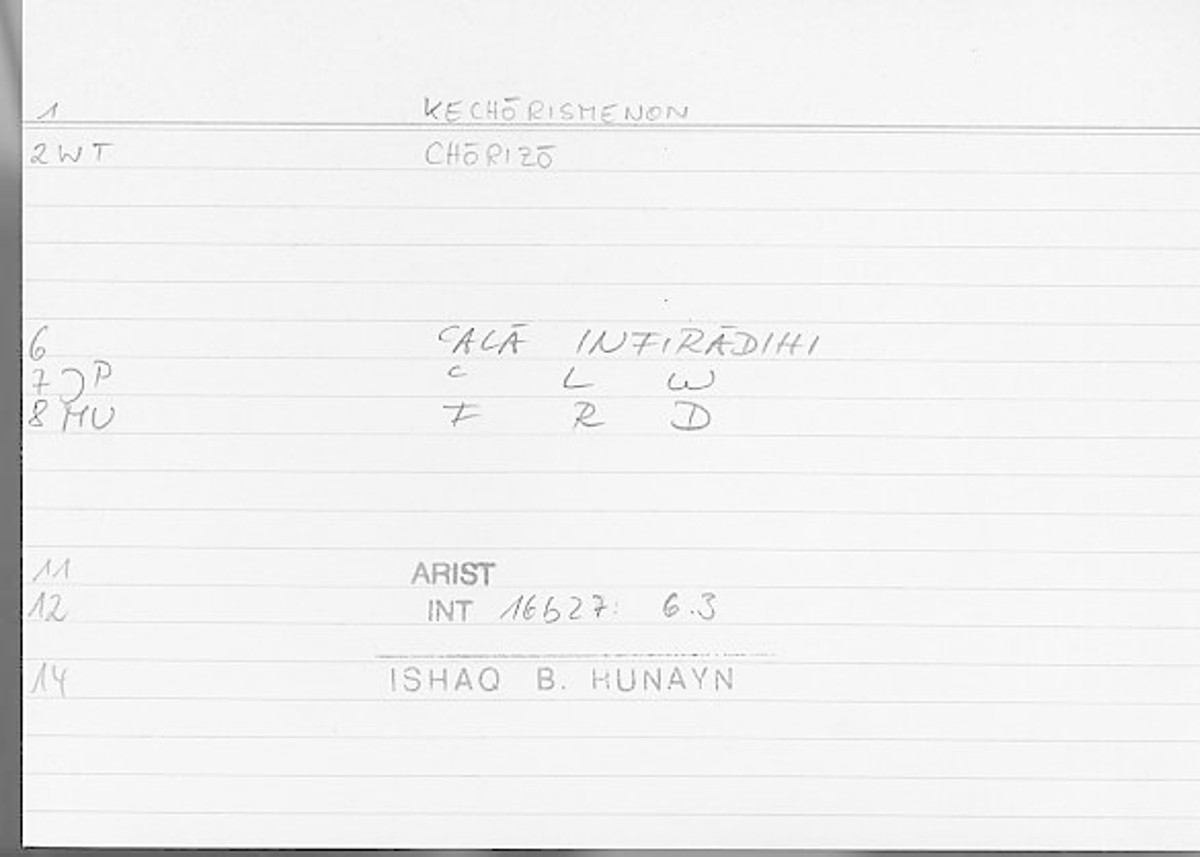 1 KECHŌRISMENON
2 WT CHŌRIZŌ
6 ʿALĀ INFIRĀDIHI
7 P ʿ L W
8 MU F R D
11 ARIST
12 INT 16b27: 6.3
14 ISHAQ B. HUNAYN